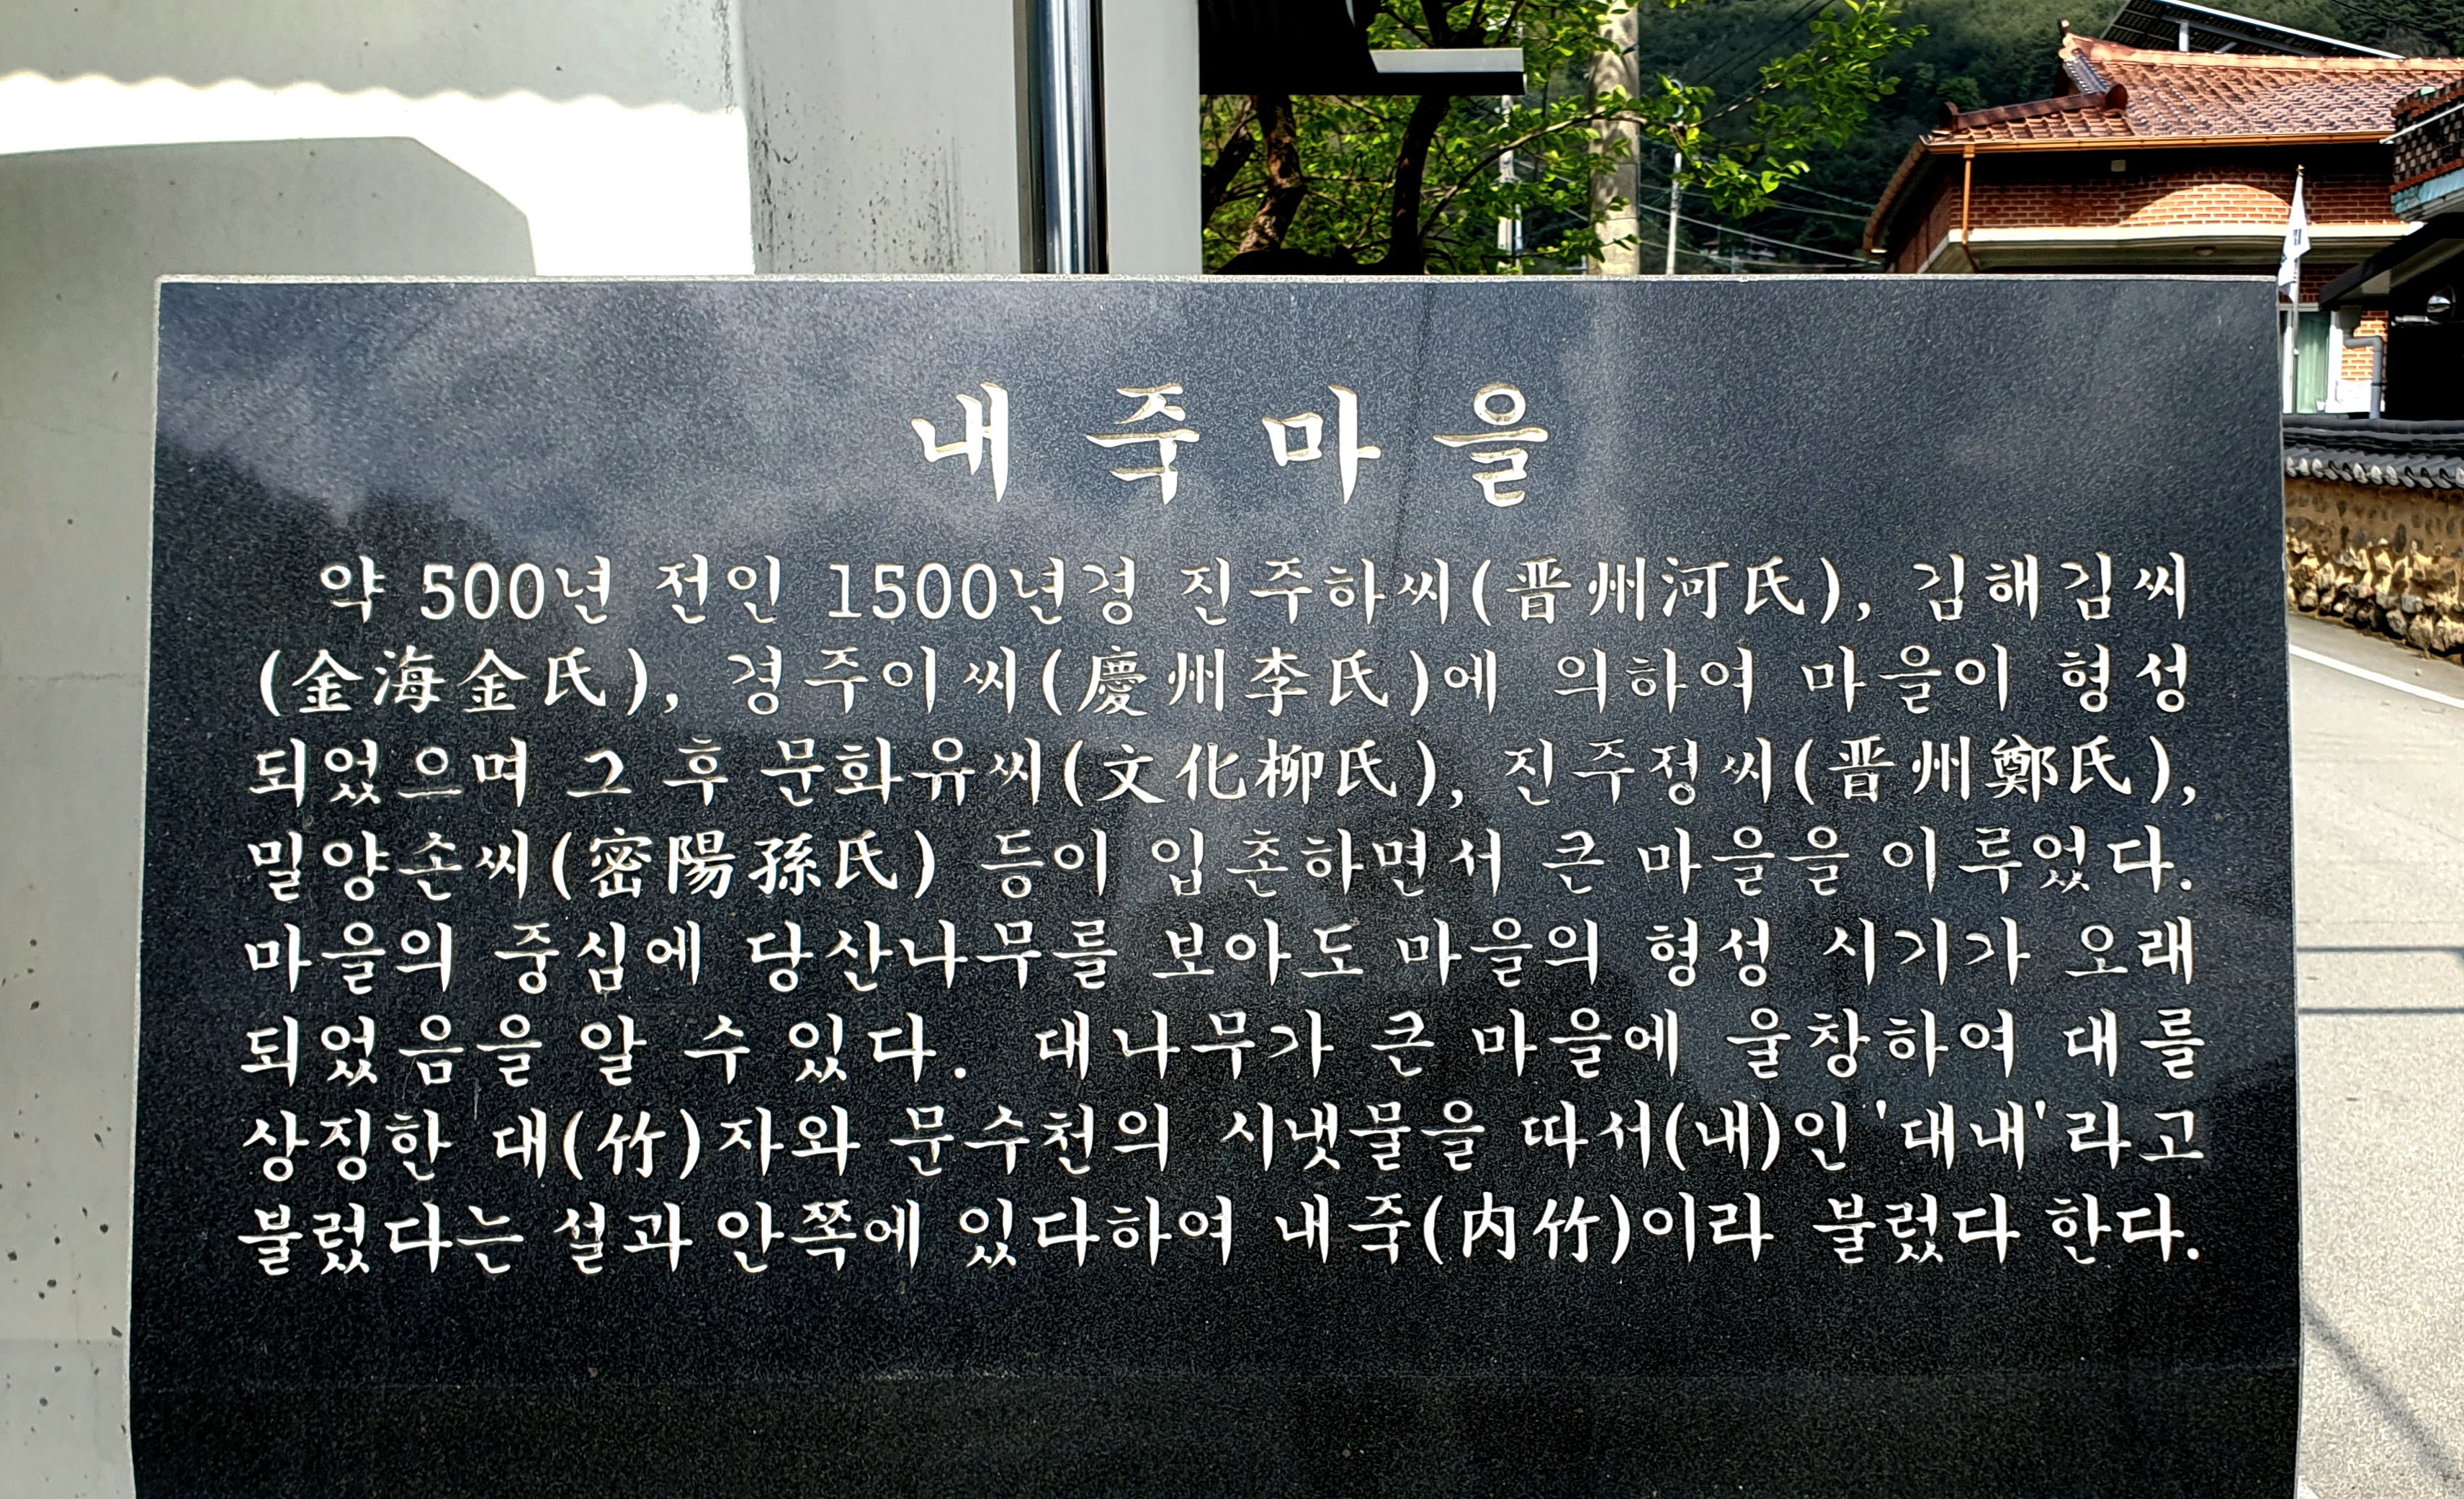 내죽마을
약 500년 전인 1500년경 진주하씨(晋州河氏), 김해김씨
(金海金氏), 경주이씨(慶州李氏)에 의하여 마을이 형성
되었으며 그 후 문화유씨(文化柳氏), 진주정씨(晋州鄭氏),
밀양손씨(密陽孫氏) 등이 입촌하면서 큰 마을을 이루었다.
마을의 중심에 당산나무를 보아도 마을의 형성 시기가 오래
되었음을 알 수 있다. 대나무가 큰 마을에 울창하여 대를
상징한 대(竹)자와 문수천의 시냇물을 따서(내)인 '대내'라고
불렀다는 설과 안쪽에 있다하여 내죽(内竹)이라 불렀다 한다.